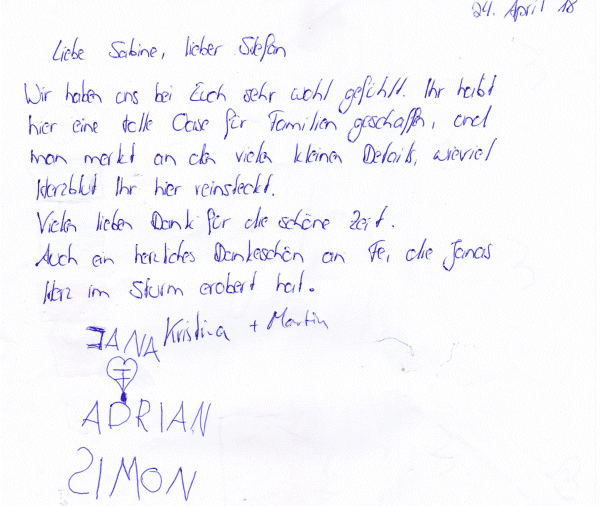 24. April 18
Liebe Sabine, lieber Stefan
Wir haben uns bei Euch sehr wohl gefühlt. Ihr habt
hier eine tolle Oase für Familien geschaffen, und
man merkt an den vielen kleinen Details, wieviel
Herzblut Ihr hier reinsteckt.
Vielen lieben Dank für die schöne Zeit.
Auch ein herzliches Dankeschön an Fe, die Janas
Herz im Sturm erobert hat.
JANA Kristina + Martin
ADRIAN
SIMON